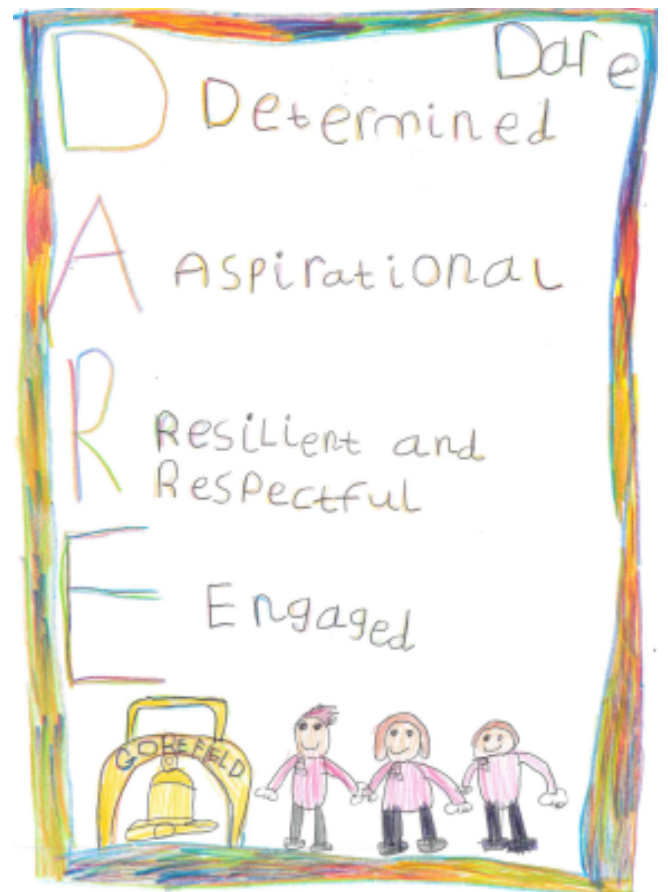 Dare
D Determined
A Aspirational
R Resilient and
Respectful
E Engaged
GOREFELD